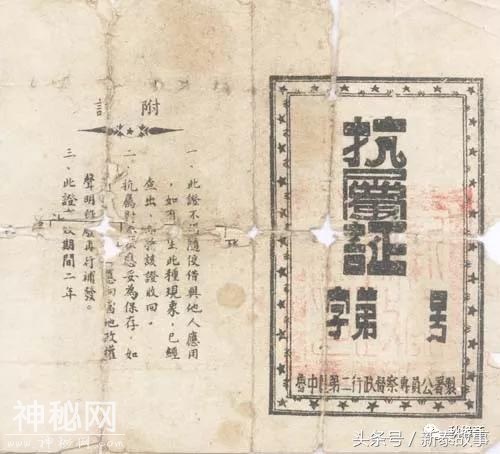 抗屬証
字第 号
魯中 第二行政督察專員公署製
附
一、此證不 隨便借與他人應用
，如有 生此種現象，已經
查出， 將該證收回。
二、抗屬對 妥為保存，如
應向當地政權
聲明作廢再行補發。
三、此證 效期間二年
神秘网
头条号 / 新泰故事